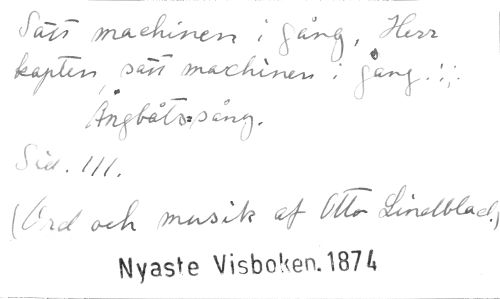 Sätt machinen i gång, Herr
kapten, sätt machinen i gång.:;:
Ångbåts-sång.
Sid. 111.
(Ord och musik af Otto Lindblad.)
Nyaste Visboken. 1874